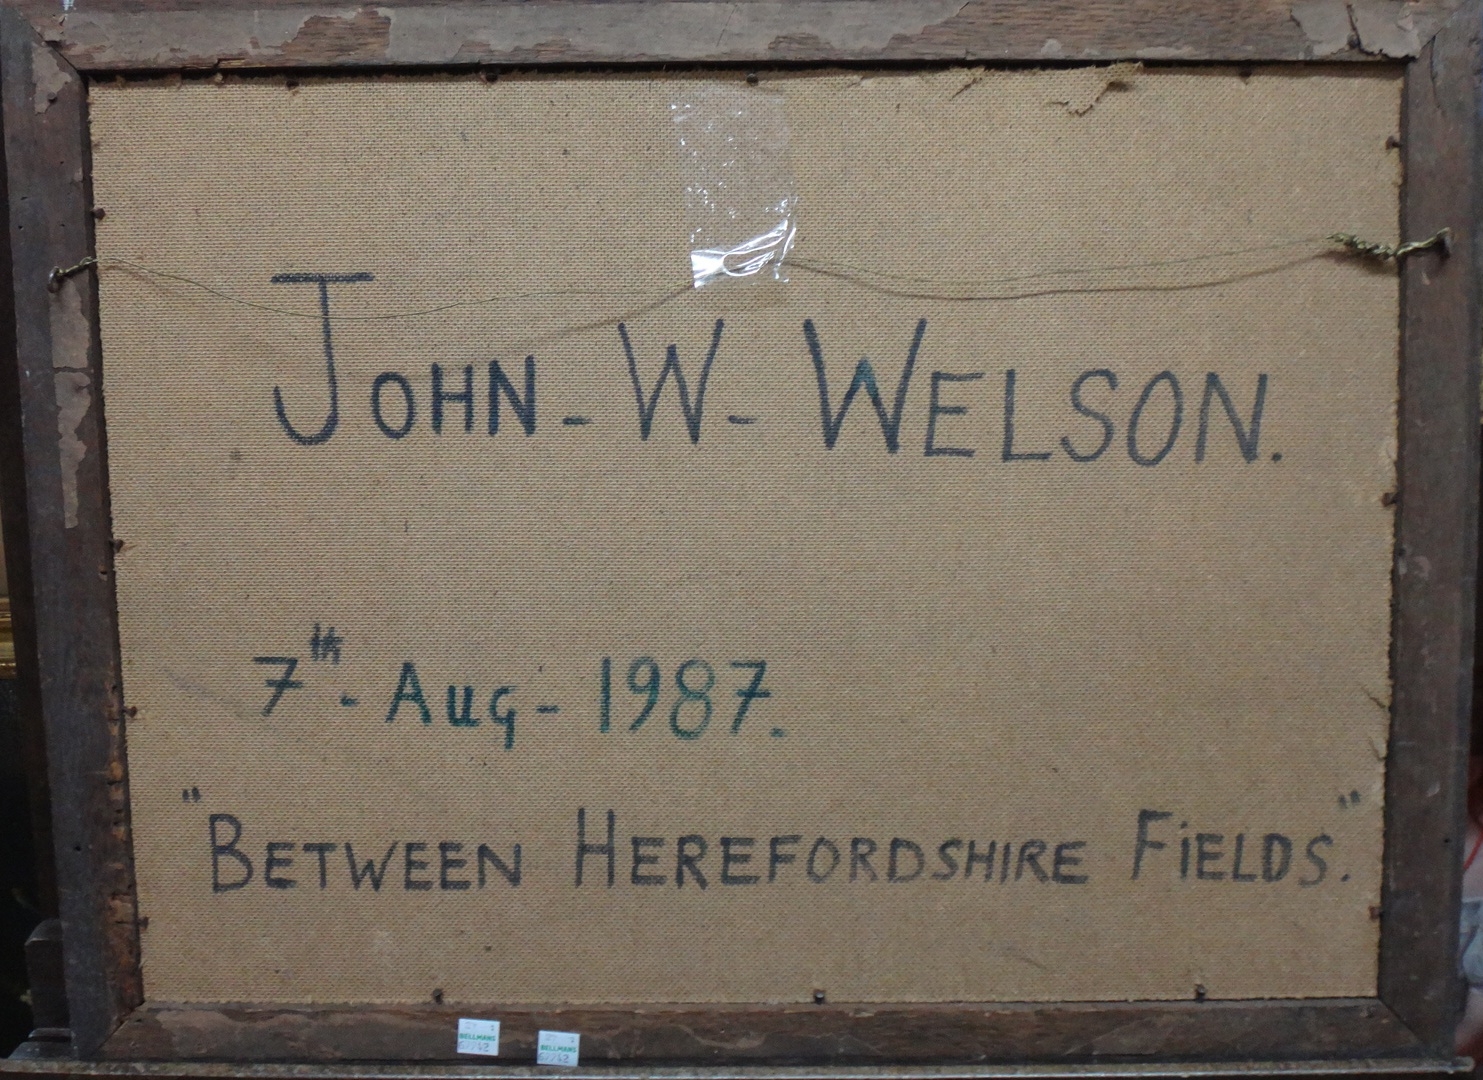 John - W - Welson.
7th - Aug - 1987.
"Between Herefordshire Fields."
BELLMANS
BELLMANS